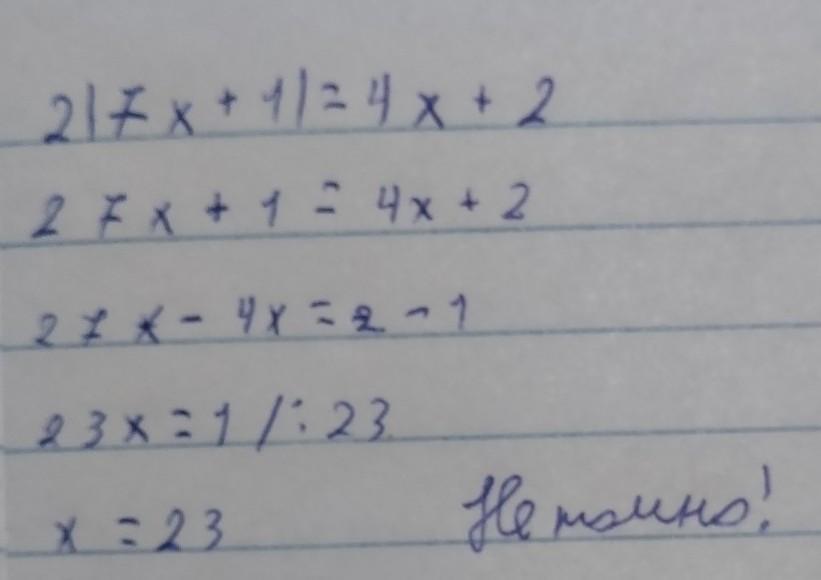 2|7x + 1| = 4x + 2
27x + 1 = 4x + 2
27x - 4x = 2 - 1
23x = 1 /: 23
x = 23 Неточно!